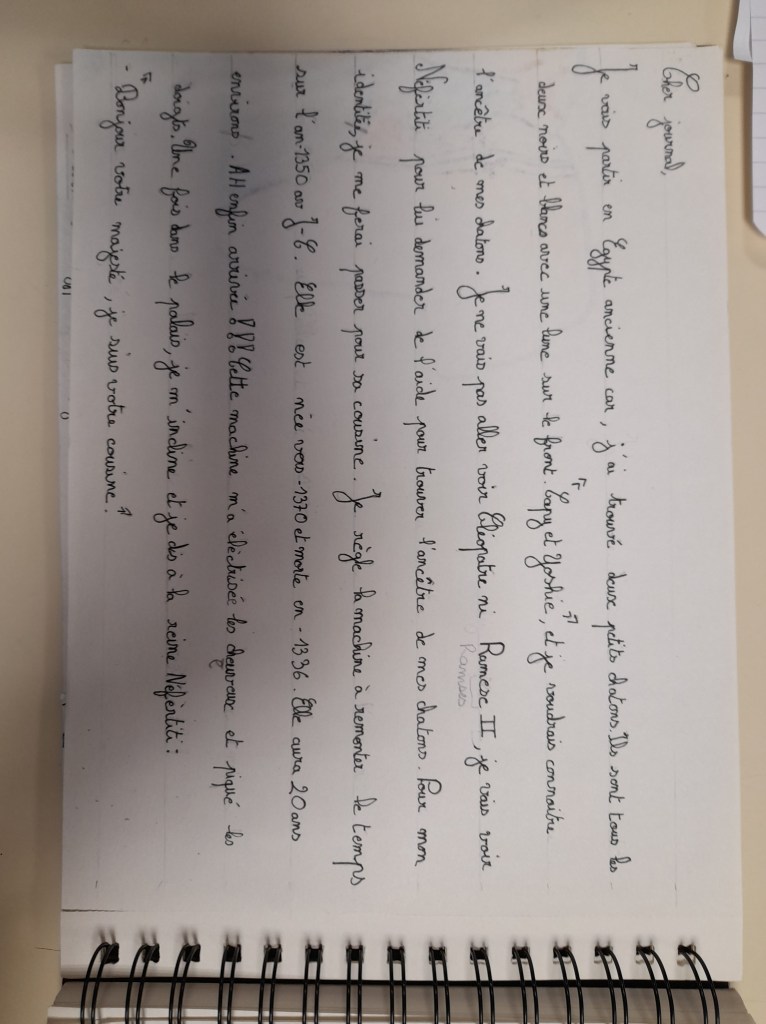 Cher journal,
Je vais partir en Egypte ancienne car, j'ai trouvé deux petits chatons. Ils sont tous les
deux noirs et blancs avec une lune sur le front. "Capy et Yoshie", et je voudrais connaitre
l'ancêtre de mes chatons. Je ne vais pas aller voir Cléopatre ni Ramese II, je vais voir
Ramses
Néfertiti pour lui demander de l'aide pour trouver l'ancêtre de mes chatons. Pour mon
identités, je me ferai passer pour sa cousine. Je règle la machine à remonter le temps
sur l'an-1350 av J-C. Elle est née vers -1370 et morte en -1336. Elle aura 20 ans
environs. AH enfin arrivée !!! Cette machine m'a éléctrisée les cheuveux et piqué les
doigts. Une fois dans le palais, je m'incline et je dis à la reine Néfèrtiti :
- "Bonjour votre majesté, je suis votre cousine."